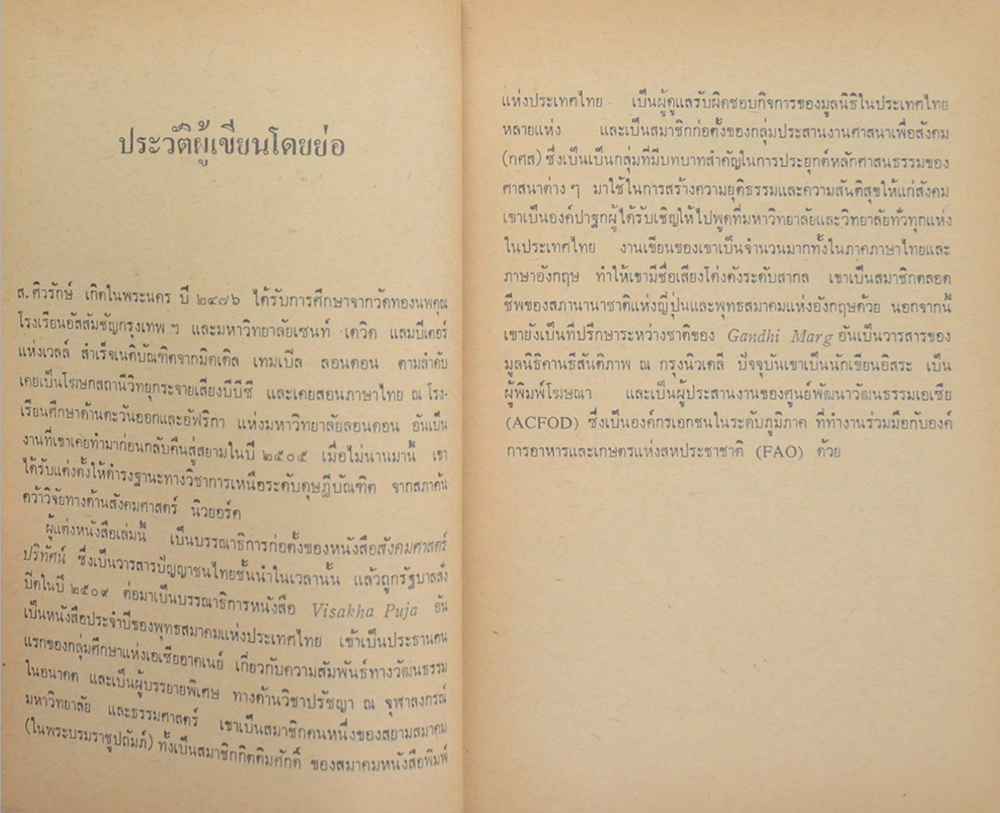 ประวัติผู้เขียนโดยย่อ
ส. ศิวรักษ์ เกิดในพระนคร ปี ๒๔๗๖ ได้รับการศึกษาจากวัดทองนพคุณ
โรงเรียนอัสสัมชัญกรุงเทพ ฯ และมหาวิทยาลัยเซนท์ เดวิด แลมปีเตอร์
แห่งเวลส์ สำเร็จเนติบัณฑิตจากมิดเดิล เทมเปิล ลอนดอน ตามลำดับ
เคยเป็นโฆษกสถานีวิทยุกระจายเสียงบีบีซี และเคยสอนภาษาไทย ณ โรง-
เรียนศึกษาด้านตะวันออกและอัฟริกา แห่งมหาวิทยาลัยลอนดอน อันเป็น
งานที่เขาเคยทำมาก่อนกลับคืนสู่สยามในปี ๒๕๐๕ เมื่อไม่นานมานี้ เขา
ได้รับแต่งตั้งให้ดำรงฐานะทางวิชาการเหนือระดับดุษฎีบัณฑิต จากสภาค้น
คว้าวิจัยทางด้านสังคมศาสตร์ นิวยอร์ค
ผู้แต่งหนังสือเล่มนี้ เป็นบรรณาธิการก่อตั้งของหนังสือสังคมศาสตร์
ปริทัศน์ ซึ่งเป็นวารสารปัญญาชนไทยชั้นนำในเวลานั้น แล้วถูกรัฐบาลสั่ง
ปิดในปี ๒๕๐๙ ต่อมาเป็นบรรณาธิการหนังสือ Visakha Puja อัน
เป็นหนังสือประจำปีของพุทธสมาคมแห่งประเทศไทย เข้าเป็นประธานคน
แรกของกลุ่มศึกษาแห่งเอเซียอาคเนย์ เกี่ยวกับความสัมพันธ์ทางวัฒนธรรม
ในอนาคต และเป็นผู้บรรยายพิเศษ ทางด้านวิชาปรัชญา ณ จุฬาลงกรณ์
มหาวิทยาลัย และธรรมศาสตร์ เขาเป็นสมาชิกคนหนึ่งของสยามสมาคม
(ในพระบรมราชูปถัมภ์) ทั้งเป็นสมาชิกกิตติมศักดิ์ ของสมาคมหนังสือพิมพ์
แห่งประเทศไทย เป็นผู้ดูแลรับผิดชอบกิจการของมูลนิธิในประเทศไทย
หลายแห่ง และเป็นสมาชิกก่อตั้งของกลุ่มประสานงานศาสนาเพื่อสังคม
(กศส) ซึ่งเป็นเป็นกลุ่มที่มีบทบาทสำคัญในการประยุกต์หลักศาสนธรรมของ
ศาสนาต่าง ๆ มาใช้ในการสร้างความยุติธรรมและความสันติสุขให้แก่สังคม
เขาเป็นองค์ปาฐกผู้ได้รับเชิญให้ไปพูดที่มหาวิทยาลัยและวิทยาลัยทั่วทุกแห่ง
ในประเทศไทย งานเขียนของเขาเป็นจำนวนมากทั้งในภาคภาษาไทยและ
ภาษาอังกฤษ ทำให้เขามีชื่อเสียงโด่งดังระดับสากล เขาเป็นสมาชิกตลอด
ชีพของสภานานาชาติแห่งญี่ปุ่นและพุทธสมาคมแห่งอังกฤษด้วย นอกจากนี้
เขายังเป็นที่ปรึกษาระหว่างชาติของ Gandhi Marg อันเป็นวารสารของ
มูลนิธิคานธีสันติภาพ ณ กรุงนิวเดลี ปัจจุบันเขาเป็นนักเขียนอิสระ เป็น
ผู้พิมพ์โฆษณา และเป็นผู้ประสานงานของศูนย์พัฒนาวัฒนธรรมเอเซีย
(ACFOD) ซึ่งเป็นองค์กรเอกชนในระดับภูมิภาค ที่ทำงานร่วมมือกับองค์
การอาหารและเกษตรแห่งสหประชาชาติ (FAO) ด้วย